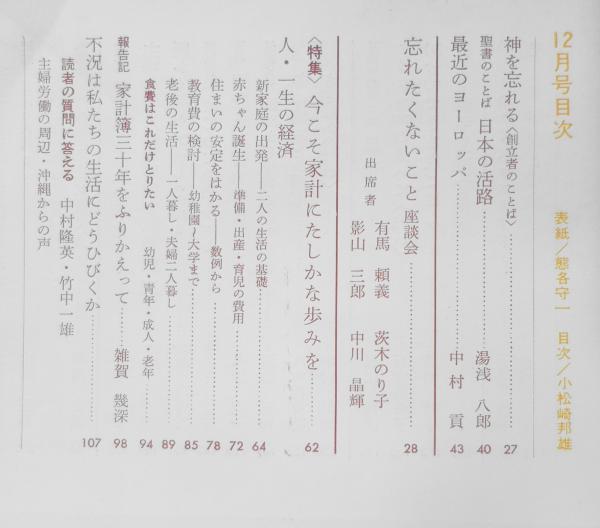 12月号目次 表紙／熊谷守一 目次／小松崎邦雄
神を忘れる〈創立者のことば〉 27
聖書のことば 日本の活路 湯浅 八郎 40
最近のヨーロッパ 中村 貢 43
忘れたくないこと 座談会 28
出席者 有馬 頼義 茨木のり子
影山 三郎 中川 晶輝
〈特集〉今こそ家計にたしかな歩みを 62
人・一生の経済
新家庭の出発――二人の生活の基礎 64
赤ちゃん誕生――準備・出産・育児の費用 72
住まいの安定をはかる――数例から 78
教育費の検討――幼稚園〜大学まで 85
老後の生活――一人暮し・夫婦二人暮し 89
食費はこれだけとりたい 幼児・青年・成人・老年 94
報告記 家計簿三十年をふりかえって 雑賀 幾深 98
不況は私たちの生活にどうひびくか 107
読者の質問に答える 中村隆英・竹中一雄
主婦労働の周辺・沖縄からの声